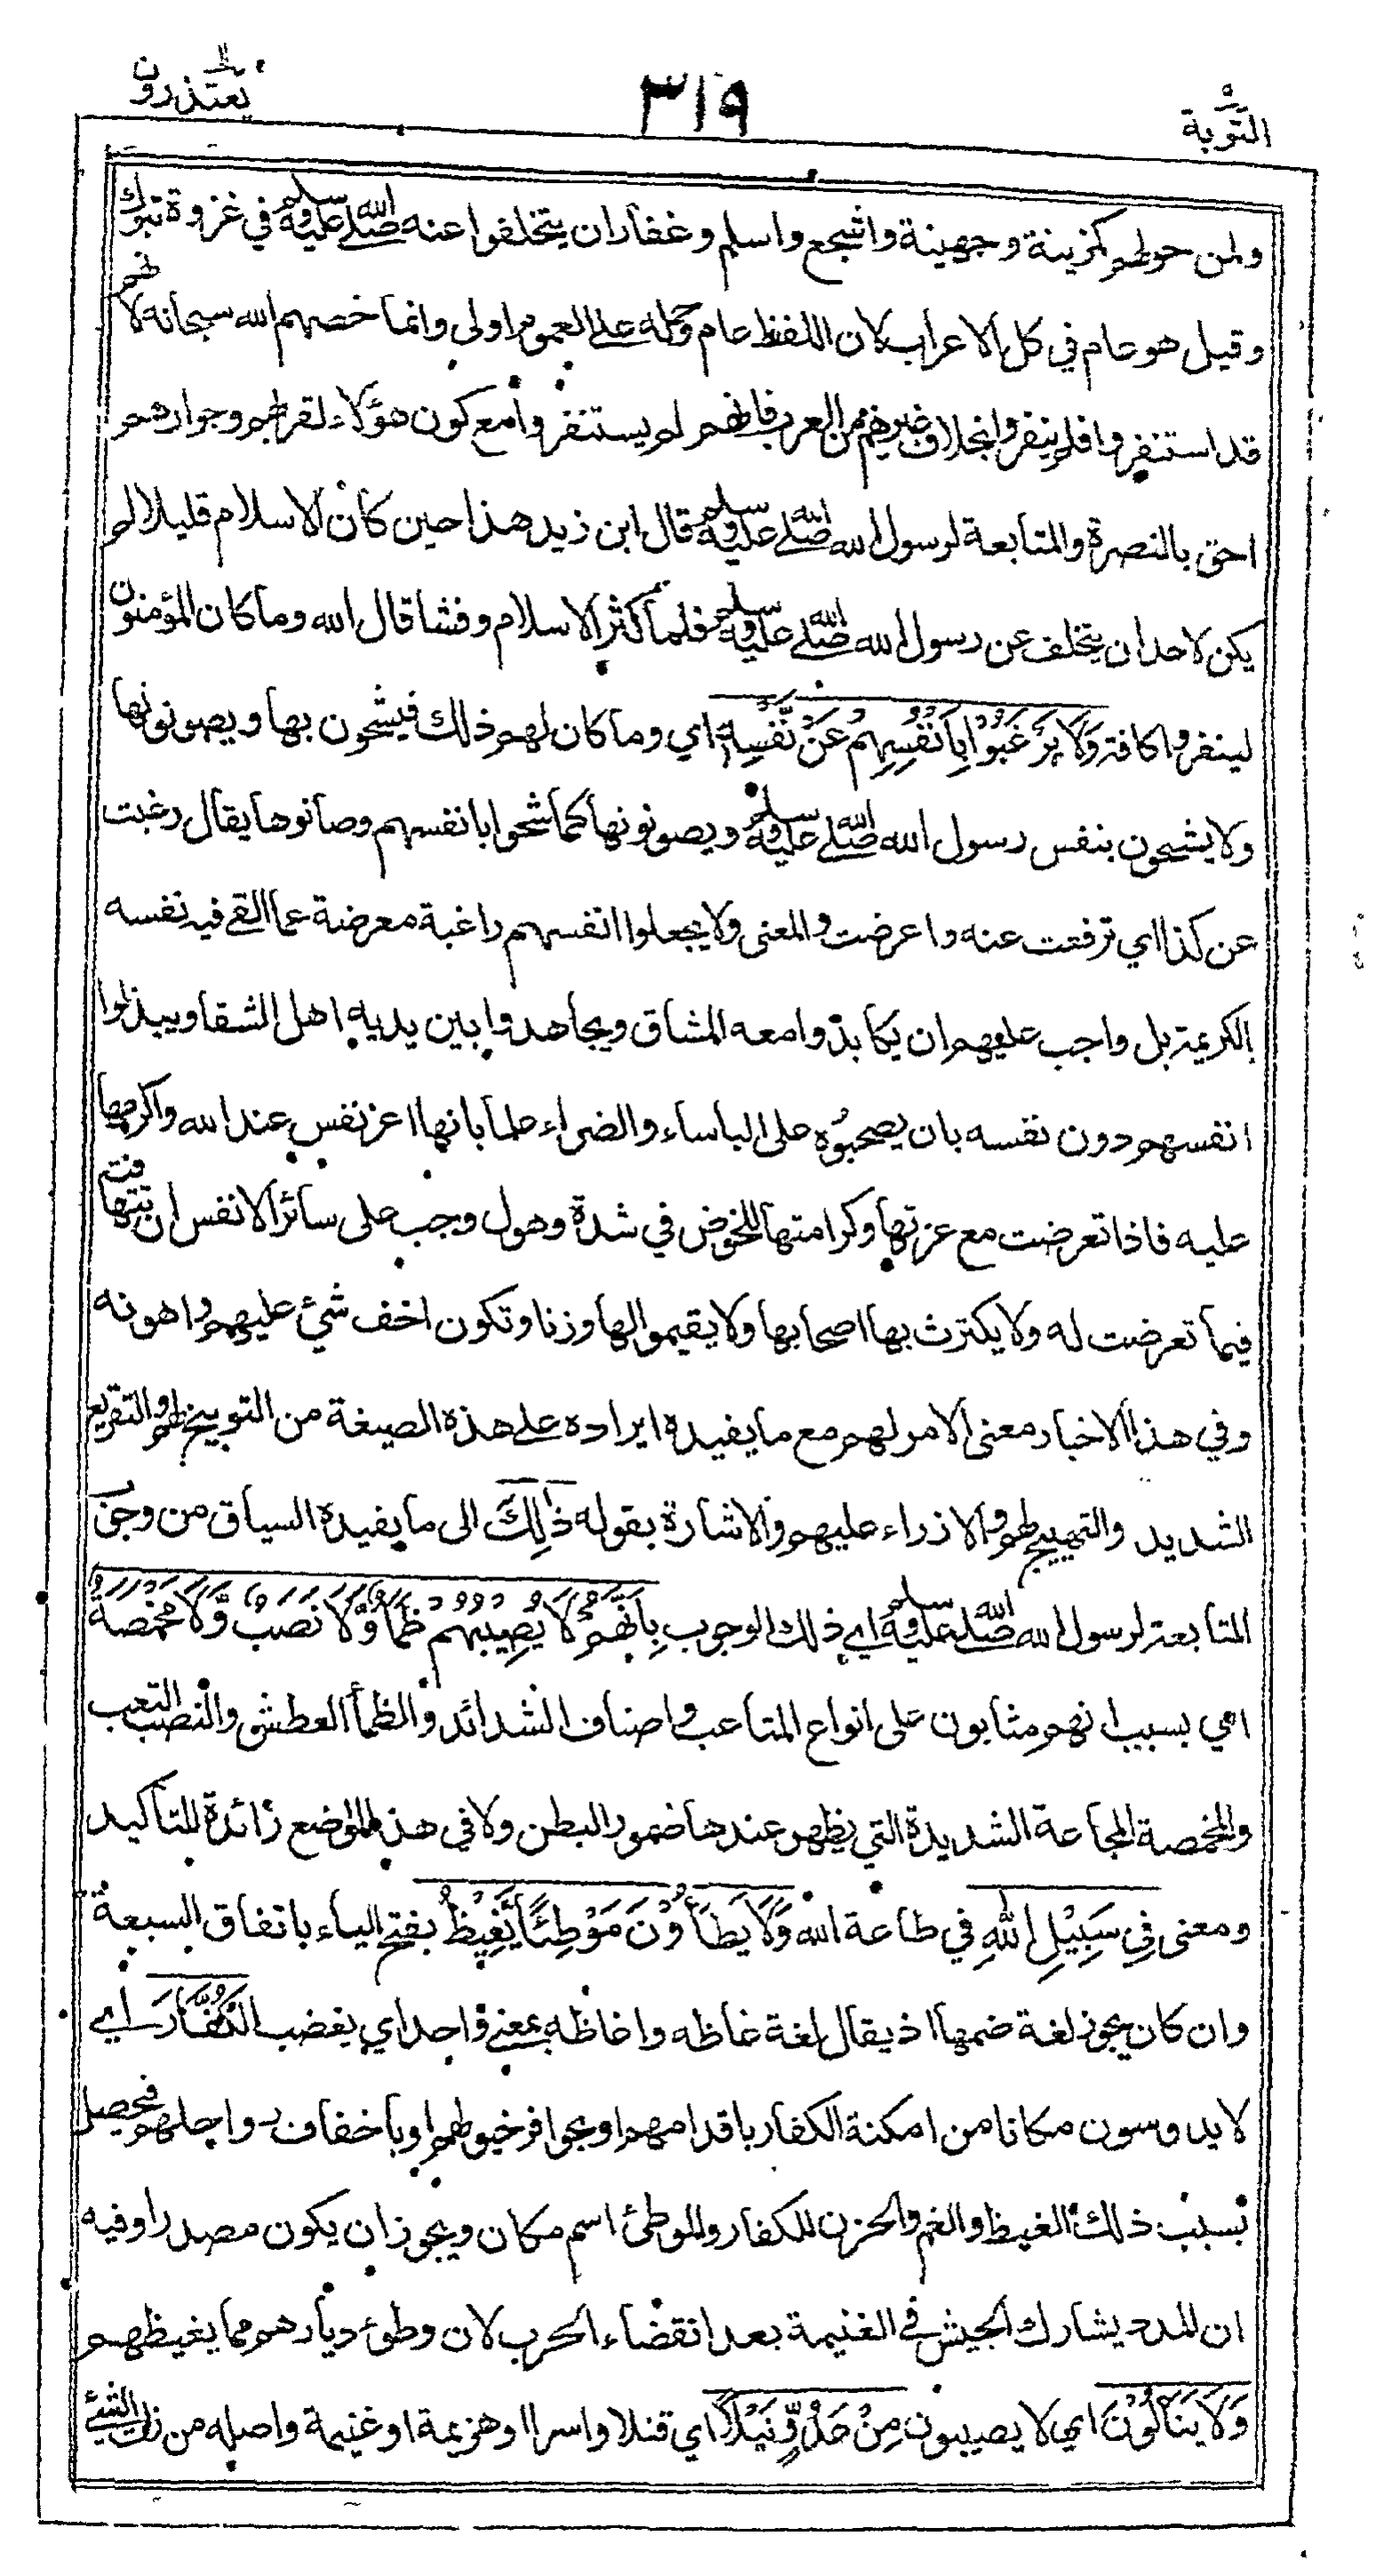 التوبة ٩
٣١٩
يعتذرون ١١
ولمن حولهم كمزينة وجهينة واشجع واسلم وغفار ان يتخلفوا عنه صلى الله عليه وسلم في غزوة تبوك
وقيل هو عام في كل الاعراب لان اللفظ عام وحمله على العموم اولى وانما خصهم الله سبحانه لانهم
قد استنفروا فلم ينفروا بخلاف غيرهم من العرب فانهم لم يستنفروا مع كون هؤلاء لقربهم وجوارهم
احق بالنصرة والمتابعة لرسول الله صلى الله عليه وسلم قال ابن زيد هذا حين كان الاسلام قليلا لم
يكن لاحد ان يتخلف عن رسول الله صلى الله عليه وسلم فلما كثر الاسلام وفشا قال الله وما كان المؤمنون
لينفروا كافة وَلَا يَرْغَبُوْا بِاَنْفُسِهِمْ عَنْ نَّفْسِهٖ اي وما كان لهم ذلك فيشحون بها ويصونونها
ولا يشحون بنفس رسول الله صلى الله عليه وسلم ويصونونها كما شحوا بانفسهم وصانوها يقال رغبت
عن كذا اي ترفعت عنه واعرضت والمعنى ولا يجعلوا انفسهم راغبة معرضة عما القى فيه نفسه
الكريمة بل واجب عليهم ان يكابدوا معه المشاق ويجاهدوا بين يديه اهل الشقا ويبذلوا
انفسهم دون نفسه بان يصحبوه على الباساء والضراء علما بانها اعز نفس عند الله واكرمها
عليه فاذا تعرضت مع عزتها وكرامتها للخوض في شدة وهول وجب على سائر الانفس ان تتهافت
فيما تعرضت له ولا يكترث بها اصحابها ولا يقيموا لها وزنا وتكون اخف شيء عليهم واهونه
وفي هذا الاخبار معنى الامر لهم مع ما يفيده ايراده على هذه الصيغة من التوبيخ لهم والتقريع
الشديد والتهييج لهم والازراء عليهم والاشارة بقوله ذٰلِكَ الى ما يفيده السياق من وجوب
المتابعة لرسول الله صلى الله عليه وسلم اي ذلك الوجوب بِاَنَّهُمْ لَا يُصِيْبُهُمْ ظَمَأٌ وَّلَا نَصَبٌ وَّلَا مَخْمَصَةٌ
اي بسبب انهم مثابون على انواع المتاعب واصناف الشدائد والظمأ العطش والنصب التعب
والمخمصة المجاعة الشديدة التي يظهر عندها ضمور البطن ولا في هذه المواضع زائدة للتأكيد
ومعنى فِي سَبِيْلِ اللّٰهِ في طاعة الله وَلَا يَطَأُوْنَ مَوْطِئًا يَّغِيْظُ بفتح الياء باتفاق السبعة
وان كان يجوز لغة ضمها اذ يقال لغة غاظه واغاظه بمعنى واحد اي يغضب الْكُفَّارَ اي
لا يدوسون مكانا من امكنة الكفار باقدامهم او بحوافر خيولهم او باخفاف رواحلهم فيحصل
بسبب ذلك الغيظ والغم والحزن للكفار والموطئ اسم مكان ويجوز ان يكون مصدرا وفيه
ان المدد يشارك الجيش في الغنيمة بعد انقضاء الحرب لان وطئ ديارهم مما يغيظهم
وَلَا يَنَالُوْنَ اي لا يصيبون مِنْ عَدُوٍّ نَّيْلًا اي قتلا واسرا او هزيمة او غنيمة واصله من نلت الشئ